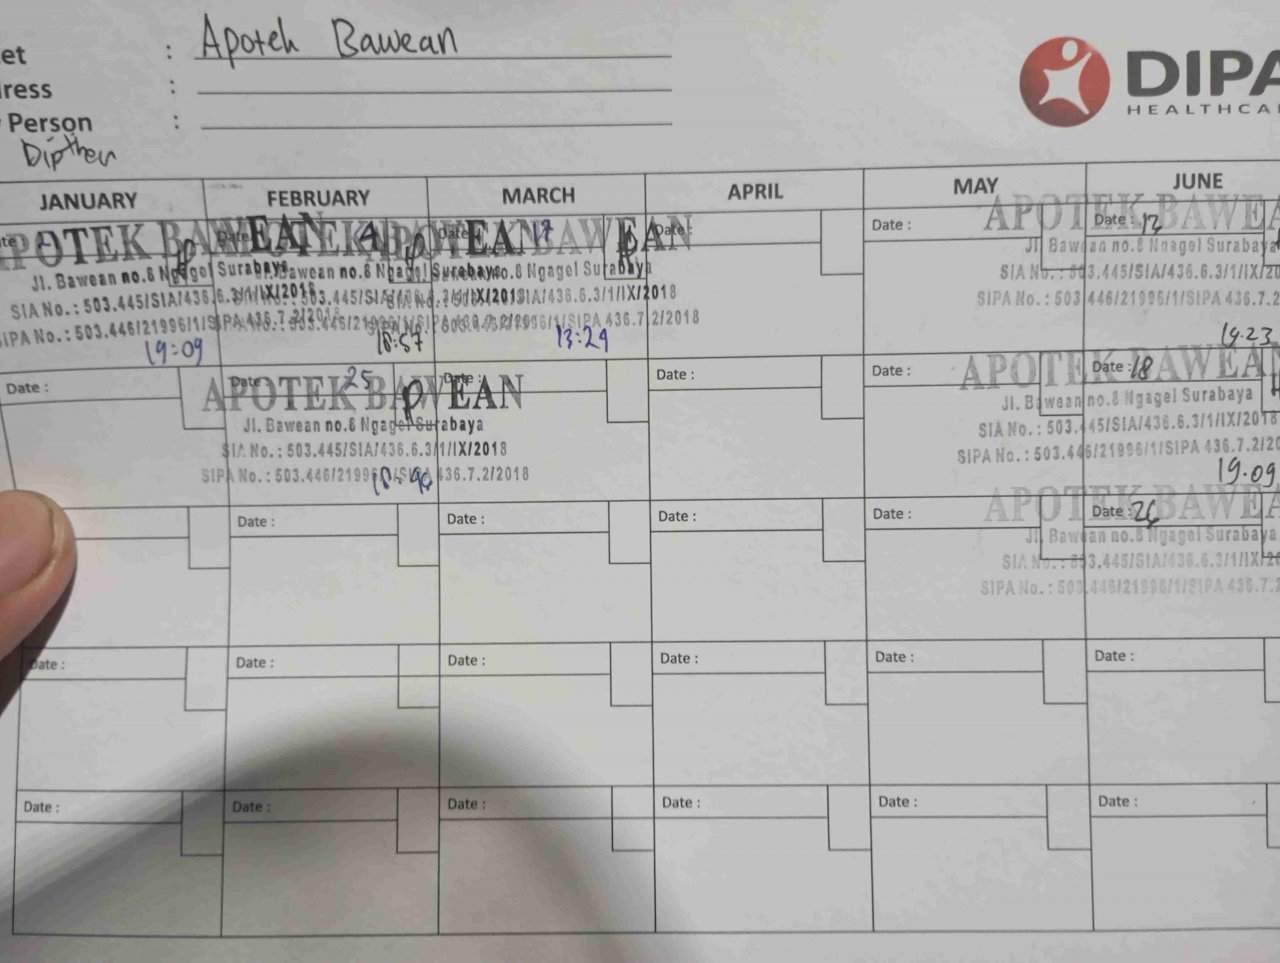 et : Apotek Bawean
ress :
Person :
Dipthen
DIPA
HEALTHCA
JANUARY FEBRUARY MARCH APRIL MAY JUNE
APOTEK BAWEAN
Jl. Bawean no.8 Ngagel Surabaya
SIA No. : 503.445/SIA/436.6.3/1/IX/2018
SIPA No. : 503.446/21996/1/SIPA 436.7.2/2018
19:09
Date : 4
APOTEK BAWEAN
Jl. Bawean no.8 Ngagel Surabaya
18:57
Date : 17
APOTEK BAWEAN
no.8 Ngagel Surabaya
SIA/436.6.3/1/IX/2018
SIPA No. : 503.446/21996/1/SIPA 436.7.2/2018
13:29
Date :
Date :
Date : 12
APOTEK BAWEA
Jl. Bawean no.8 Ngagel Surabaya
SIA No. : 503.445/SIA/436.6.3/1/IX/20
SIPA No. : 503.446/21996/1/SIPA 436.7.2
19.23
Date :
Date : 25
APOTEK BAWEAN
Jl. Bawean no.8 Ngagel Surabaya
SIA No. : 503.445/SIA/436.6.3/1/IX/2018
SIPA No. : 503.446/21996/1/SIPA 436.7.2/2018
Date :
Date :
Date :
Date : 18
APOTEK BAWEAN
Jl. Bawean no.8 Ngagel Surabaya
SIA No. : 503.445/SIA/436.6.3/1/IX/2018
SIPA No. : 503.446/21996/1/SIPA 436.7.2/20
19.09
Date : Date : Date : Date : Date : 26
APOTEK BAWEA
Jl. Bawean no.8 Ngagel Surabaya
SIA No. : 503.445/SIA/436.6.3/1/IX/20
SIPA No. : 503.446/21996/1/SIPA 436.7.2
Date : Date : Date : Date : Date : Date :
Date : Date : Date : Date : Date : Date :